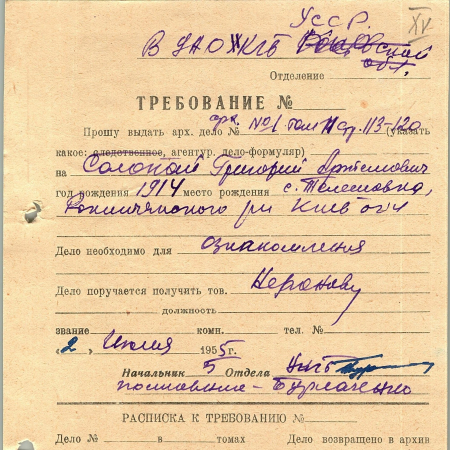 УССР. XV
В УАО КГБ
обл.
Отделение
ТРЕБОВАНИЕ №
Прошу выдать арх. дело № арх. №1 том 11 стр. 113-120 (указать
какое: следственное, агентур. дело-формуляр)
на Солопай Григорий Артемович
год рождения 1914 место рождения с. Телешовка,
Рокитнянского р-н Киев обл
Дело необходимо для ознакомления
Дело поручается получить тов. Неронову
должность
звание комн. тел. №
„2„ Июля 1955г.
Начальник 5 Отдела
Бурлаченко
РАСПИСКА К ТРЕБОВАНИЮ №
Дело № в томах Дело возвращено в архив